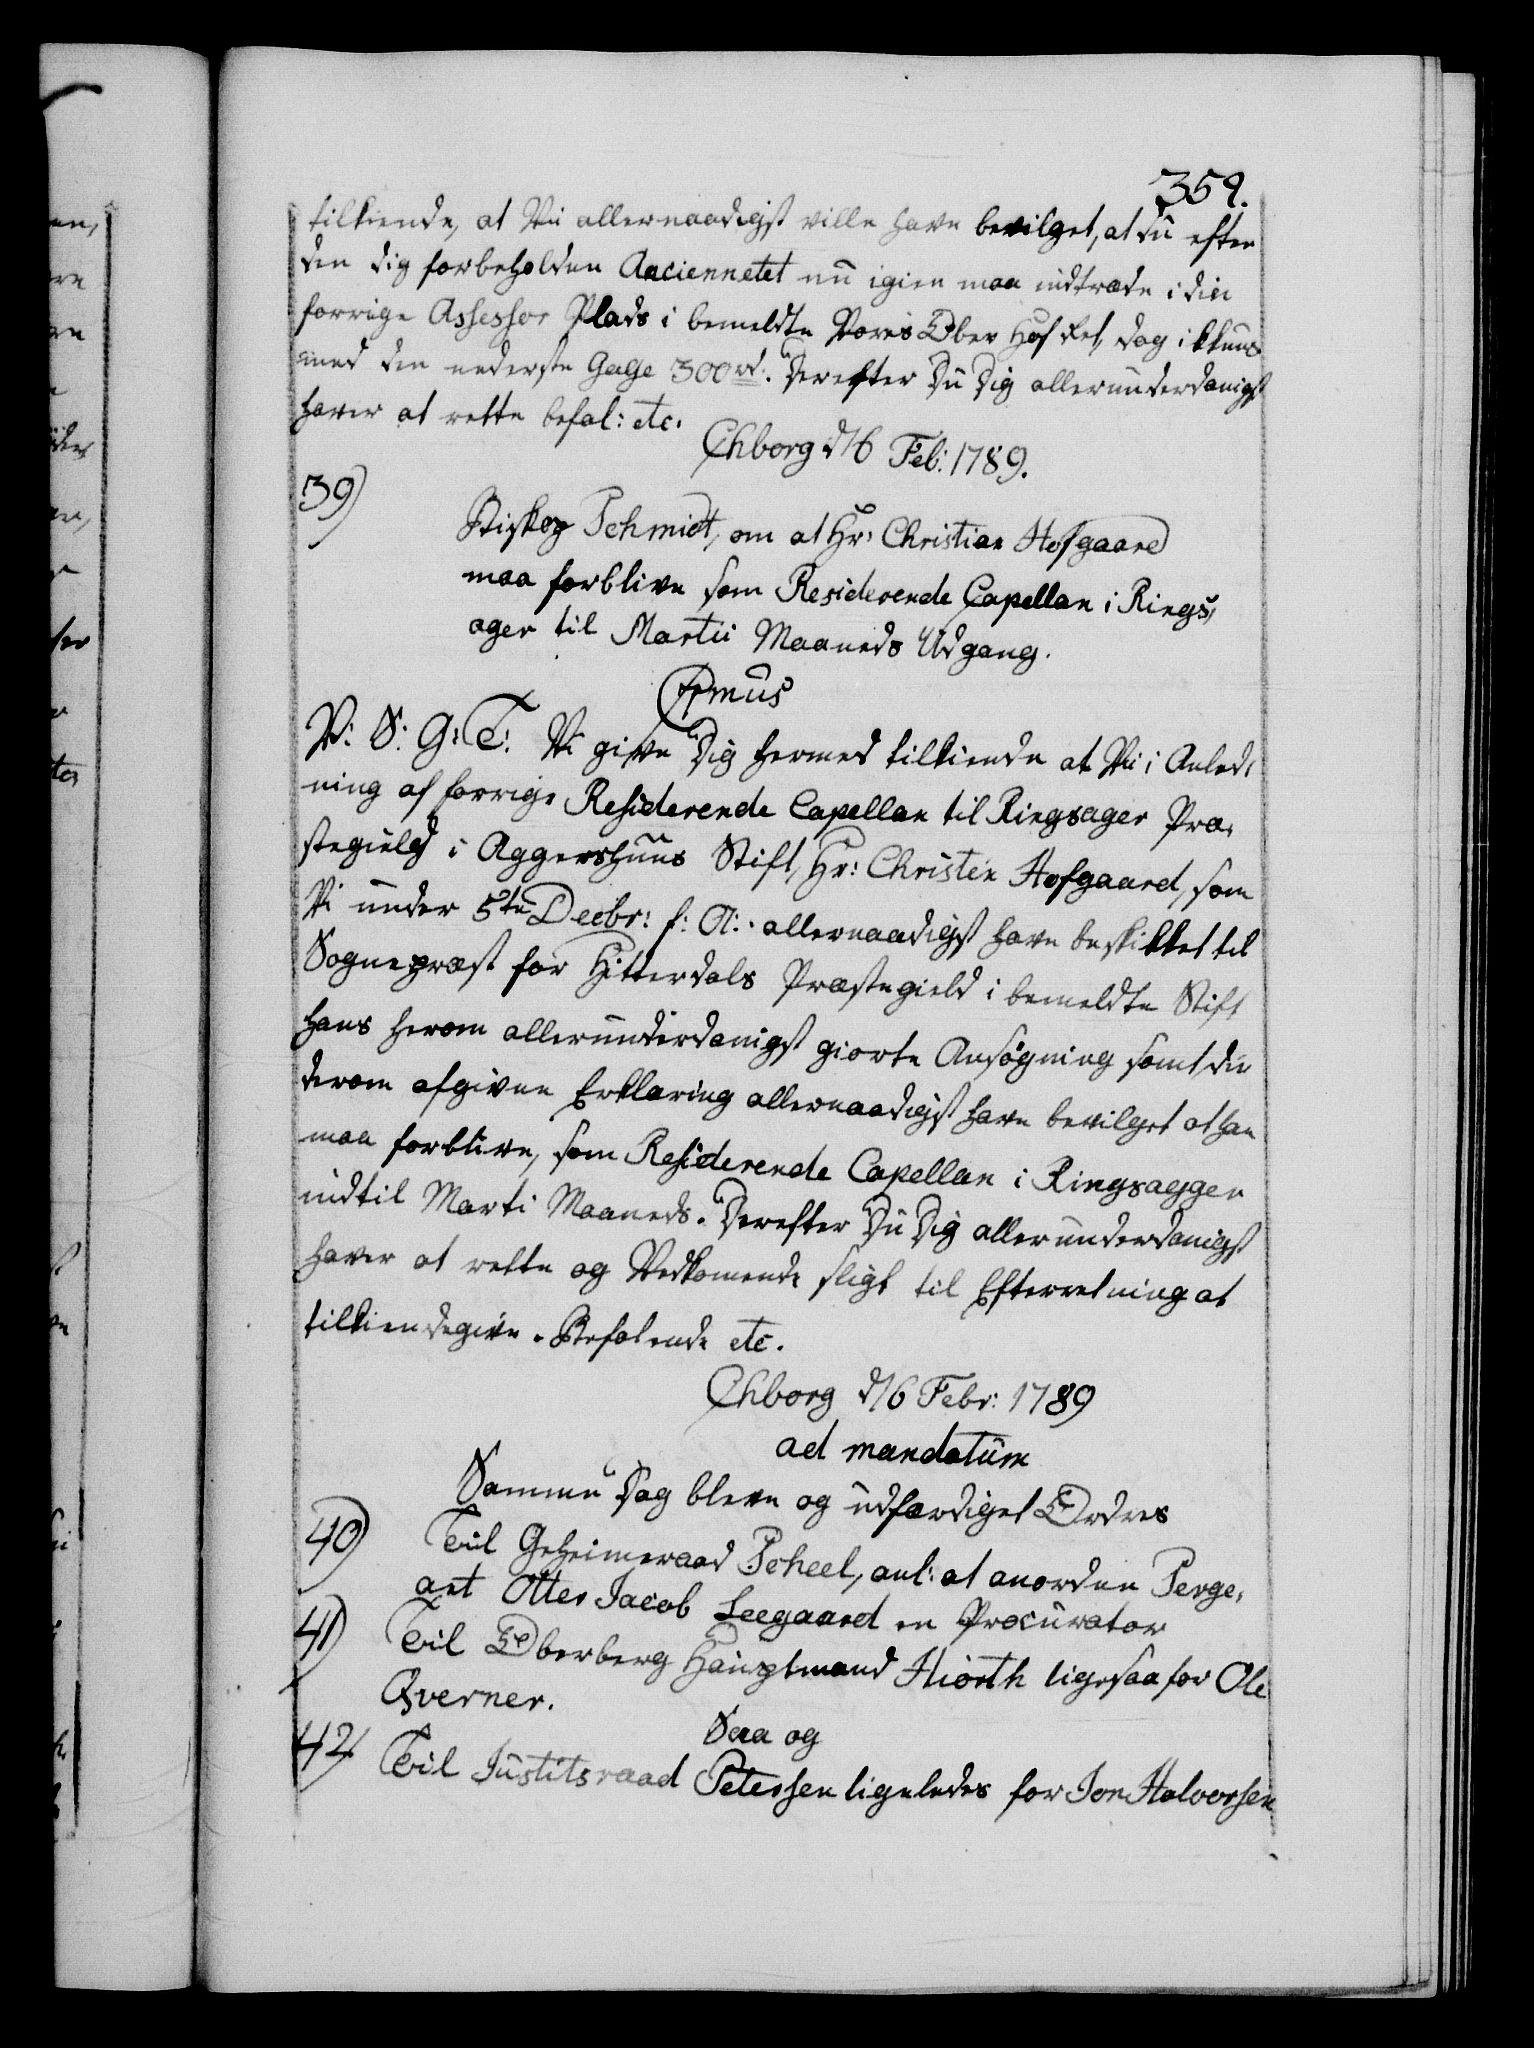 359.
tilkiende, at Vii allernaadigst ville have bevilget, at du efter
den dig forbeholden Anciennetet nu igien maa indtræde i din
forrige Assessor Plads i bemeldte Vores Ober Hof Ret, dog ikkuns
med den nederste Gage 300 rd. Derefter Du Dig allerunderdanigst
haver at rette befal: etc.
Chborg d/6 Feb: 1789.
39)
Biskop Schmidt, om at Hr: Christian Hofgaard
maa forblive som Residerende Capellan i Rings,
ager til Martii Maaneds Udgang.
V: S: G: T: Vi give Dig hermed tilkiende at Vii i Anled,
ning af forrige Residerende Capellan til Ringsager Præ,
stegield i Aggershuus Stift, Hr: Christen Hofgaard, som
Vi under 5te Decbr: f: A: allernaadigst have beskikket til
Sognepræst for Hitterdals Præstegield i bemeldte Stift
hans herom allerunderdanigst giorte Ansøgning samt din
derom afgivne Erklæring allernaadigst have bevilget at han
maa forblive, som Residerende Capellan i Ringsagger
indtil Marti Maaneds. Derefter Du Dig allerunderdanigst
haver at rette og Vedkomende sligt til Efterretning at
tilkiendegive. Befalende etc.
Chborg d/6 Febr: 1789
ad mandatum
Samme Dag bleve og udfærdiget Ordres
40) Til Geheimeraad Scheel, anl: at anordne Serge,
ant Otter Jacob Leegaard en Procurator
41) Til Oberberg Hauptmand Hiorth ligesaa for Ole
Qverner.
Saa og
42) Til Justitsraad Petersen ligeledes for Jon Halvorsen